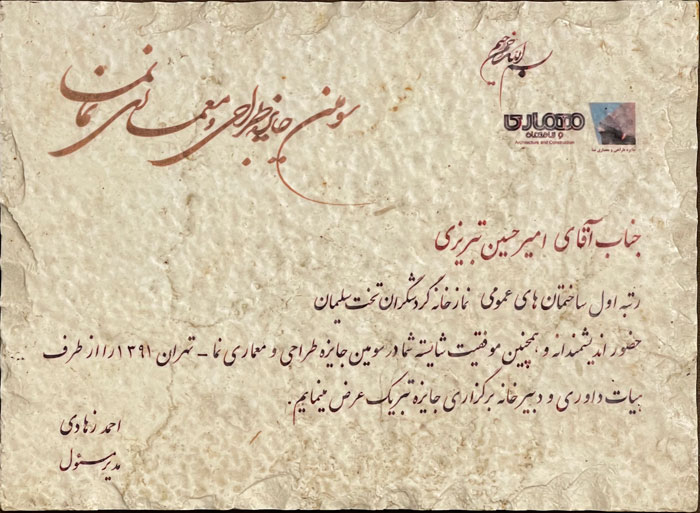 بسم الله الرحمن الرحیم
سومین جایزه طراحی و معماری نمای نما
معماری
و ساختمان
Architecture and Construction
جایزه طراحی و معماری نما
جناب آقای امیر حسین تبریزی
رتبه اول ساختمان های عمومی نمازخانه گردشگران تخت سلیمان
حضور اندیشمندانه و همچنین موفقیت شایسته شما در سومین جایزه طراحی و معماری نما - تهران ۱۳۹۱ را از طرف
هیات داوری و دبیرخانه برگزاری جایزه تبریک عرض مینمایم.
احمد زهادی
مدیر مسئول